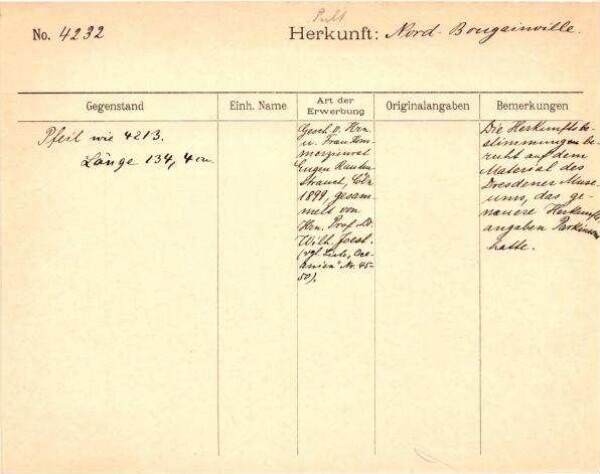 Pult
No. 4232
Herkunft: Nord-Bougainville.
Gegenstand
Einh. Name
Art der
Erwerbung
Originalangaben
Bemerkungen
Pfeil wie 4213.
Länge 134,4 cm
Gesch. v. Hrn.
u. Frau Kom-
merzienrat
Eugen Rauten-
strauch, Cöln
1899, gesam-
melt von
Hrn. Prof. Dr.
Wilh. Joest.
(vgl. Liste, Oce-
anien" Nr. 45-
50).
Die Herkunftsbe-
stimmungen be-
ruht auf dem
Material des
Dresdener Muse-
ums, das ge-
nauere Herkunfts-
angaben Parkinsons
hatte.